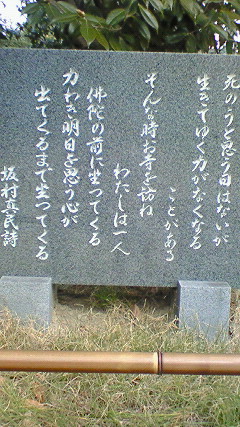 死のうと思う日はないが
生きてゆく力がなくなる
ことがある
そんな時お寺を訪ね
わたしは一人
佛陀の前に坐ってくる
力わき明日を思う心が
出てくるまで坐ってくる
坂村真民詩